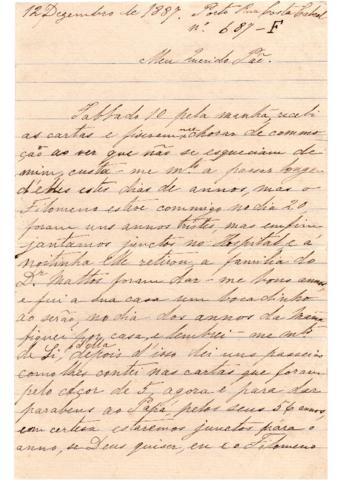 12 Dezembro de 1887. Porto Rua Costa Cabral
nº 687-F
Meu Querido Pae.
Sabbado 10 pela manhã recebi
as cartas e fizeram-me chorar de commo-
ção ao ver que não se esqueciam de
mim, custa-me mto a passar longe
d'elles estes dias de annos, mas o
Filomeno esteve commigo no dia 20
foram uns annos tristes, mas emfim
jantamos junctos no hospital, e a
noitinha elle retirou, a familia do
Dr Mattos foram dar-me bons annos
e fui a sua casa um bocadinho
ao serão, no dia dos annos da
fiquei por casa, e lembrei-me mto
de Si, e d'ella depois d'isso dei uns passeios
como lhes contei nas cartas que foram
pelo Açor de 5, agora é para dar
parabens ao Papá, pelos seus 56 annos,
com certesa estaremos junctos para o
anno, se Deus quiser, eu e o Filomeno